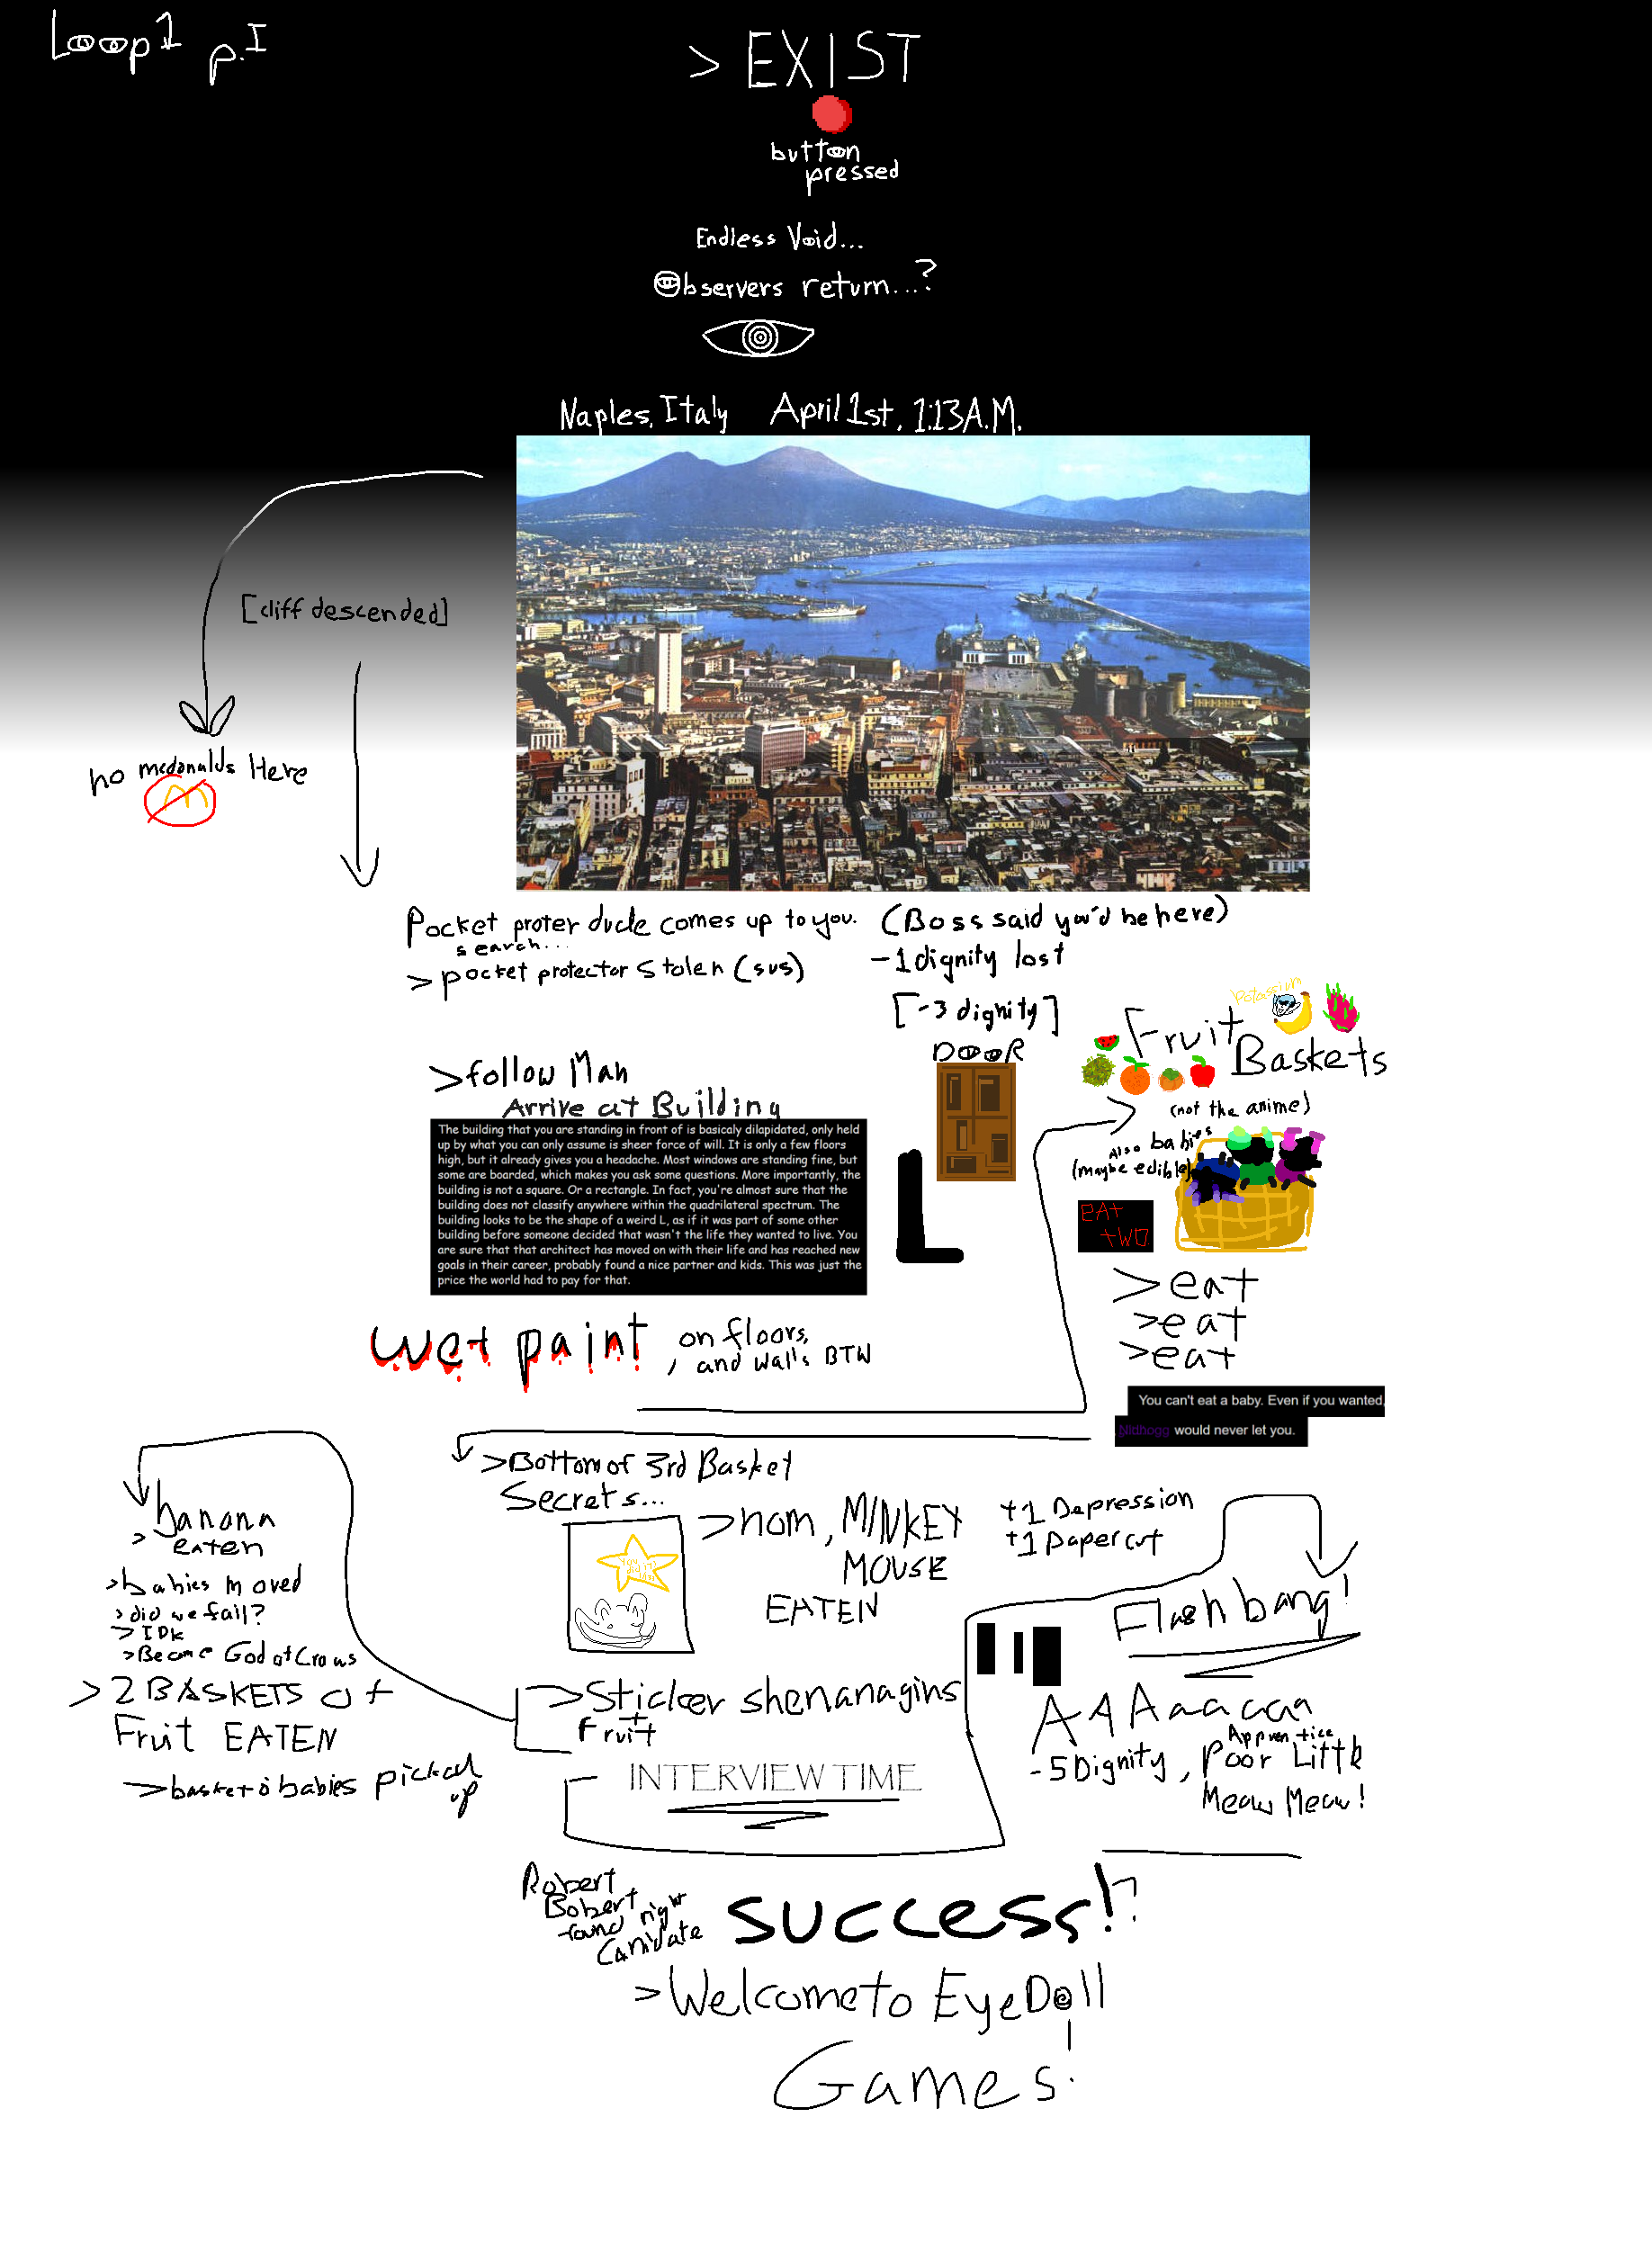 Loop 1 p.I
> EXIST
button
pressed
Endless Void...
Observers return...?
Naples, Italy April 1st, 1:13 A.M.
[cliff descended]
no mcdonalds Here
Pocket proter dude comes up to you. (Boss said you'd be here)
search...
-1 dignity lost
> pocket protector stolen (sus)
[-3 dignity]
DOOR
potassium
Fruit
Baskets
(not the anime)
Also babies
(maybe edible)
eat
two
>follow Man
Arrive at Building
The building that you are standing in front of is basicaly dilapidated, only held
up by what you can only assume is sheer force of will. It is only a few floors
high, but it already gives you a headache. Most windows are standing fine, but
some are boarded, which makes you ask some questions. More importantly, the
building is not a square. Or a rectangle. In fact, you're almost sure that the
building does not classify anywhere within the quadrilateral spectrum. The
building looks to be the shape of a weird L, as if it was part of some other
building before someone decided that wasn't the life they wanted to live. You
are sure that that architect has moved on with their life and has reached new
goals in their career, probably found a nice partner and kids. This was just the
price the world had to pay for that.
L
>eat
>eat
>eat
wet paint, on floors,
and walls BTW
You can't eat a baby. Even if you wanted,
Nidhogg would never let you.
>Bottom of 3rd Basket
Secrets...
>nom, MINKEY
MOUSE
EATEN
+1 Depression
+1 papercut
banana
> eaten
>babies moved
>did we fail?
>IDK
>Become God of Crows
> 2 BASKETS of
Fruit EATEN
>basket o babies picked
up
>Sticker shenanagins
+
Fruit
INTERVIEW TIME
Flashbang!
AAAaaaaa
-5 Dignity, Apprentice Poor Little
Meow Meow!
Robert
Bobert
found right
Canidate
success!?
>Welcome to EyeDoll
Games!